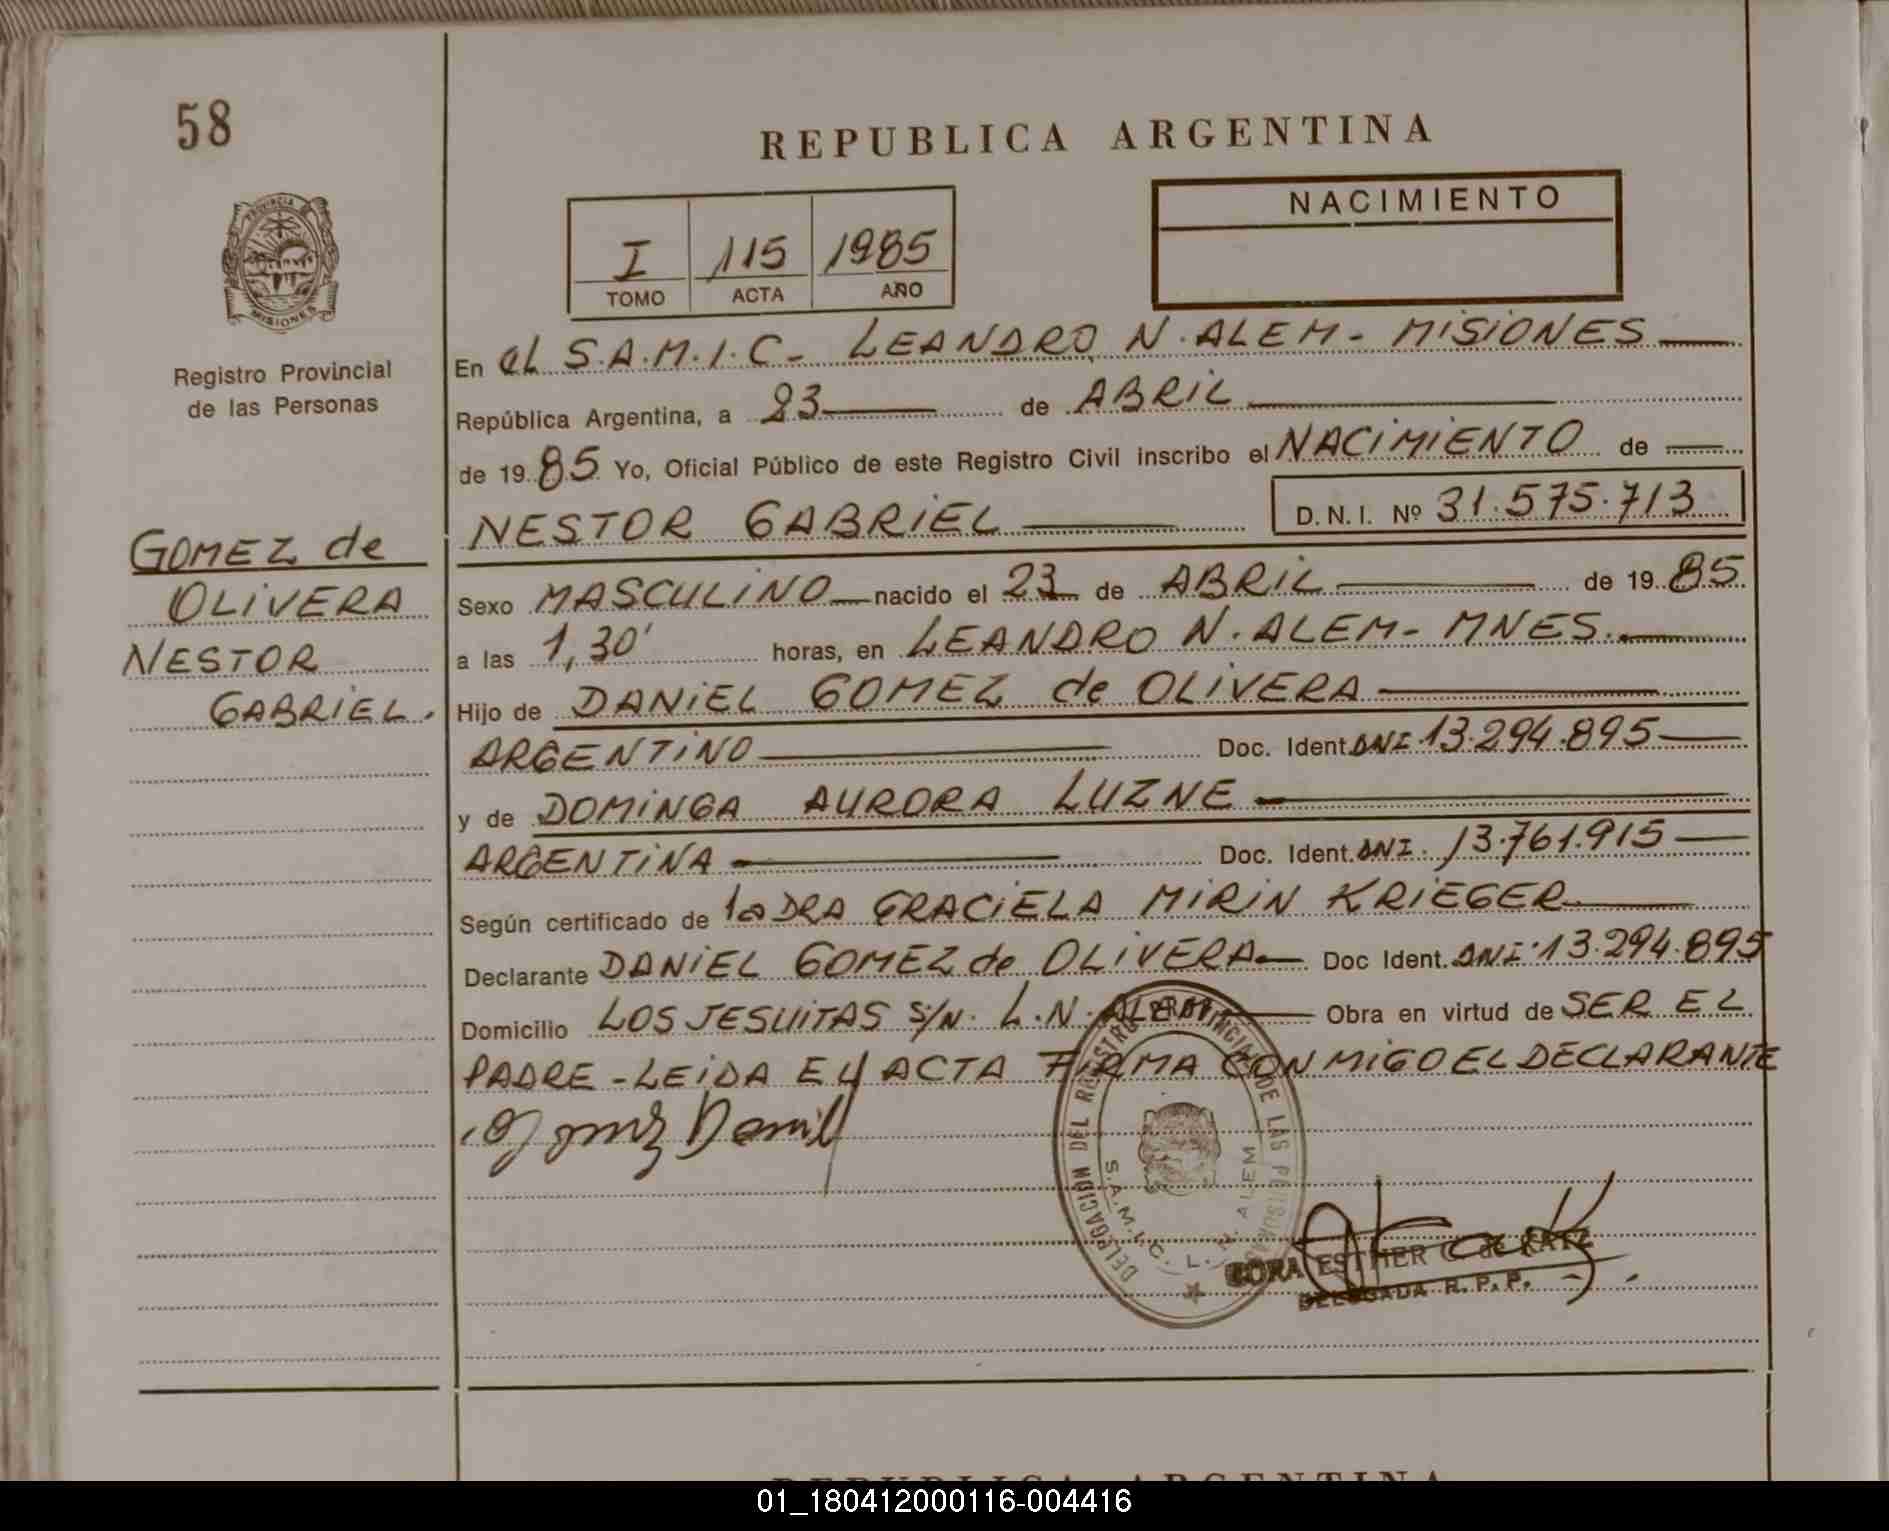 58
REPUBLICA ARGENTINA
PROVINCIA
MISIONES
Registro Provincial
de las Personas
I 115 1985
TOMO ACTA AÑO
NACIMIENTO
En el S.A.M.I.C- LEANDRO N. ALEM - MISIONES
República Argentina, a 23 de ABRIL
de 1985 Yo, Oficial Público de este Registro Civil inscribo el NACIMIENTO de
NESTOR GABRIEL D.N.I. Nº 31.575.713
GOMEZ de
OLIVERA
NESTOR
GABRIEL.
Sexo MASCULINO nacido el 23 de ABRIL de 1985
a las 1,30' horas, en LEANDRO N. ALEM - MNES.
Hijo de DANIEL GOMEZ de OLIVERA
ARGENTINO Doc. Ident. DNI 13.294.895
y de DOMINGA AURORA LUZNE
ARGENTINA Doc. Ident. DNI. 13.761.915
Según certificado de la DRA GRACIELA MIRIN KRIEGER
Declarante DANIEL GOMEZ de OLIVERA Doc Ident. DNI. 13.294.895
Domicilio LOS JESUITAS S/N. L.N. ALEM Obra en virtud de SER EL
PADRE - LEIDA EL ACTA FIRMA CONMIGO EL DECLARANTE
Gomez Daniel
DELEGACION DEL REGISTRO PROVINCIAL DE LAS PERSONAS
S.A.M.I.C. L. N. ALEM
ESTHER G. de KATZ
DELEGADA R.P.P.
REPUBLICA ARGENTINA
01_180412000116-004416